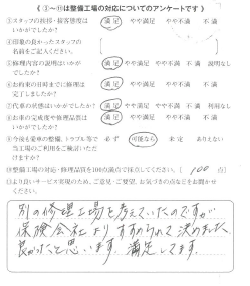 《 ③～⑪は整備工場の対応についてのアンケートです 》
③スタッフの挨拶・接客態度は 満足 やや満足 やや不満 不満
いかがでしたか？
④印象の良かったスタッフの
名前をご記入ください。
⑤修理内容の説明はいかが 満足 やや満足 やや不満 不満 説明なし
でしたか？
⑥お約束の日時までに修理は 満足 やや満足 やや不満 不満
完了しましたか？
⑦代車の状態はいかがでしたか？ 満足 やや満足 やや不満 不満 利用なし
⑧お車の完成度や修理品質は 満足 やや満足 やや不満 不満
いかがでしたか？
⑨今後も愛車の整備、トラブル等で 必ず 可能なら 未定 ありえない
当工場のご利用をご検討いただ
けますか？
⑩整備工場の対応・修理品質を100点満点で採点してください。 ( 100 点)
⑪より良いサービス実現のため、ご意見・ご要望、お気づきの点などをお聞かせ
ください。
別の修理工場を考えていたのですが
保険会社よりすすめられて決めました。
良かったと思います。満足してます。